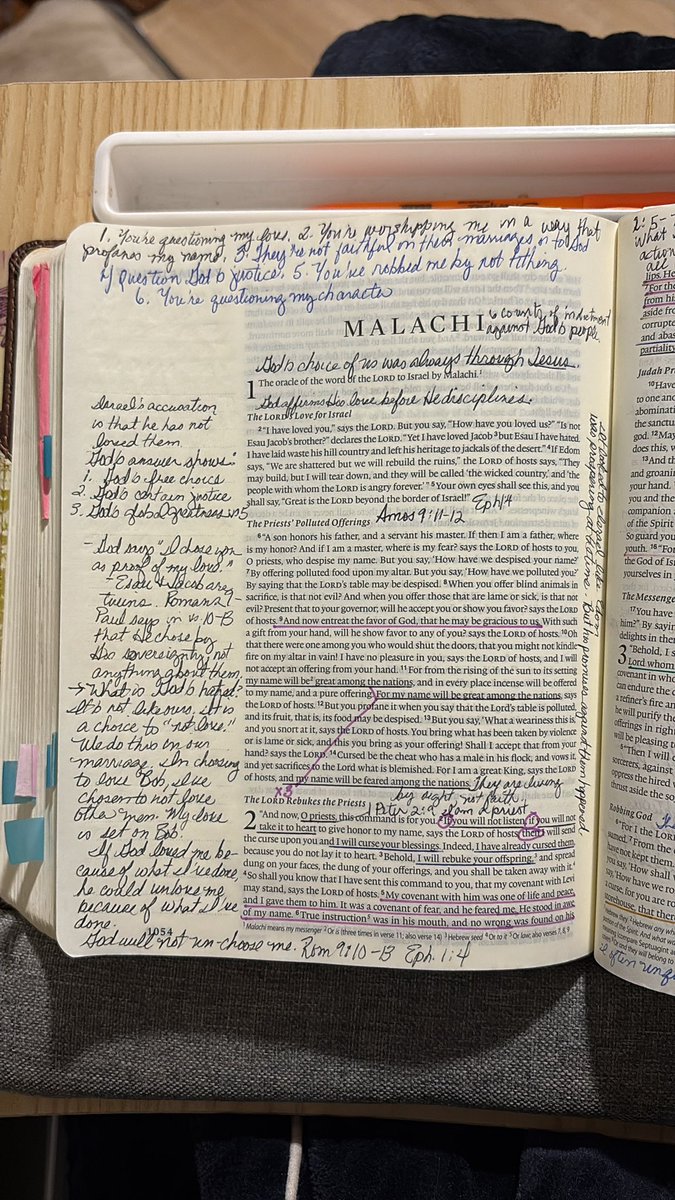 1. You're questioning my love. 2. You're worshipping me in a way that
profanes my name. 3. They're not faithful in their marriages, or to God
4) Question God's justice. 5. You've robbed me by not tithing.
6. You're questioning my character
MALACHI
6 counts of indictment
against God's people
God's choice of us was always through Jesus.
1 The oracle of the word of the LORD to Israel by Malachi.¹
God affirms His love before He disciplines.
The LORD's Love for Israel
²"I have loved you," says the LORD. But you say, "How have you loved us?" "Is not
Esau Jacob's brother?" declares the LORD. "Yet I have loved Jacob ³but Esau I have hated.
I have laid waste his hill country and left his heritage to jackals of the desert." ⁴If Edom
says, "We are shattered but we will rebuild the ruins," the LORD of hosts says, "They
may build, but I will tear down, and they will be called 'the wicked country,' and 'the
people with whom the LORD is angry forever.'" ⁵Your own eyes shall see this, and you
shall say, "Great is the LORD beyond the border of Israel!"
Eph 1:4
Amos 9:11-12
The Priests' Polluted Offerings
⁶"A son honors his father, and a servant his master. If then I am a father, where
is my honor? And if I am a master, where is my fear? says the LORD of hosts to you,
O priests, who despise my name. But you say, 'How have we despised your name?'
⁷By offering polluted food upon my altar. But you say, 'How have we polluted you?'
By saying that the LORD's table may be despised. ⁸When you offer blind animals in
sacrifice, is that not evil? And when you offer those that are lame or sick, is that not
evil? Present that to your governor; will he accept you or show you favor? says the LORD
of hosts. ⁹And now entreat the favor of God, that he may be gracious to us. With such
a gift from your hand, will he show favor to any of you? says the LORD of hosts. ¹⁰Oh
that there were one among you who would shut the doors, that you might not kindle
fire on my altar in vain! I have no pleasure in you, says the LORD of hosts, and I will
not accept an offering from your hand. ¹¹For from the rising of the sun to its setting
my name will be² great among the nations, and in every place incense will be offered
to my name, and a pure offering. For my name will be great among the nations, says
the LORD of hosts. ¹²But you profane it when you say that the Lord's table is polluted,
and its fruit, that is, its food may be despised. ¹³But you say, 'What a weariness this is,'
and you snort at it, says the LORD of hosts. You bring what has been taken by violence
or is lame or sick, and this you bring as your offering! Shall I accept that from your
hand? says the LORD. ¹⁴Cursed be the cheat who has a male in his flock, and vows it,
and yet sacrifices to the Lord what is blemished. For I am a great King, says the LORD
of hosts, and my name will be feared among the nations.
x3
They are living
by sight not faith.
The LORD Rebukes the Priests
1 Peter 2:9 I am a priest
2 "And now, O priests, this command is for you. ²If you will not listen, if you will not
take it to heart to give honor to my name, says the LORD of hosts, then I will send
the curse upon you and I will curse your blessings. Indeed, I have already cursed them,
because you do not lay it to heart. ³Behold, I will rebuke your offspring,³ and spread
dung on your faces, the dung of your offerings, and you shall be taken away with it.⁴
⁴So shall you know that I have sent this command to you, that my covenant with Levi
may stand, says the LORD of hosts. ⁵My covenant with him was one of life and peace,
and I gave them to him. It was a covenant of fear, and he feared me. He stood in awe
of my name. ⁶True instruction⁵ was in his mouth, and no wrong was found on his
¹ Malachi means my messenger ² Or is (three times in verse 11; also verse 14) ³ Hebrew seed ⁴ Or to it ⁵ Or law; also verses 7, 8, 9
1054
Israel's accusation
is that he has not
loved them.
God's answer shows:
1. God's free choice
2. God's certain justice
3. God's global greatness vs 5
- God says "I chose you
as proof of my love."
- Esau & Jacob are
twins. Romans 9 -
Paul says in vs 10-13
that He chose by
His sovereignty not
anything about them.
→ What is God's hatred?
It's not like ours, it is
a choice to "not love."
We do this in our
marriage. In choosing
to love Bob, I've
chosen to not love
other men. My love
is set on Bob.
If God loved me be-
cause of what I've done,
he could unlove me
because of what I've
done.
God will not un-choose me. Rom 9:10-13 Eph. 1:4
was prospering at the time - But the promises against them happened.
1:5-
What
action
all
lips. He
⁷For the
from his
aside from
corrupted
and abas
partiality
Judah Pr
¹⁰Have
to one and
abominati
the sanctu
god. ¹²May
does this, v
¹³And th
and groanin
your hand.
you and the
companion
of the Spirit
So guard you
youth. ¹⁶"For
the God of Isra
yourselves in
The Messenge
¹⁷You have
him?" By sayin
delights in them
3 "Behold, I s
Lord whom
covenant in who
can endure the c
a refiner's fire an
he will purify the
offerings in right
will be pleasing to
⁵"Then I will d
sorcerers, against
oppress the hired
thrust aside the so
Robbing God
⁶"For I the LORD
sumed. ⁷From the
have not kept them.
you say, 'How shall
you say, 'How have we ro
a curse, for you are rob
storehouse, that there